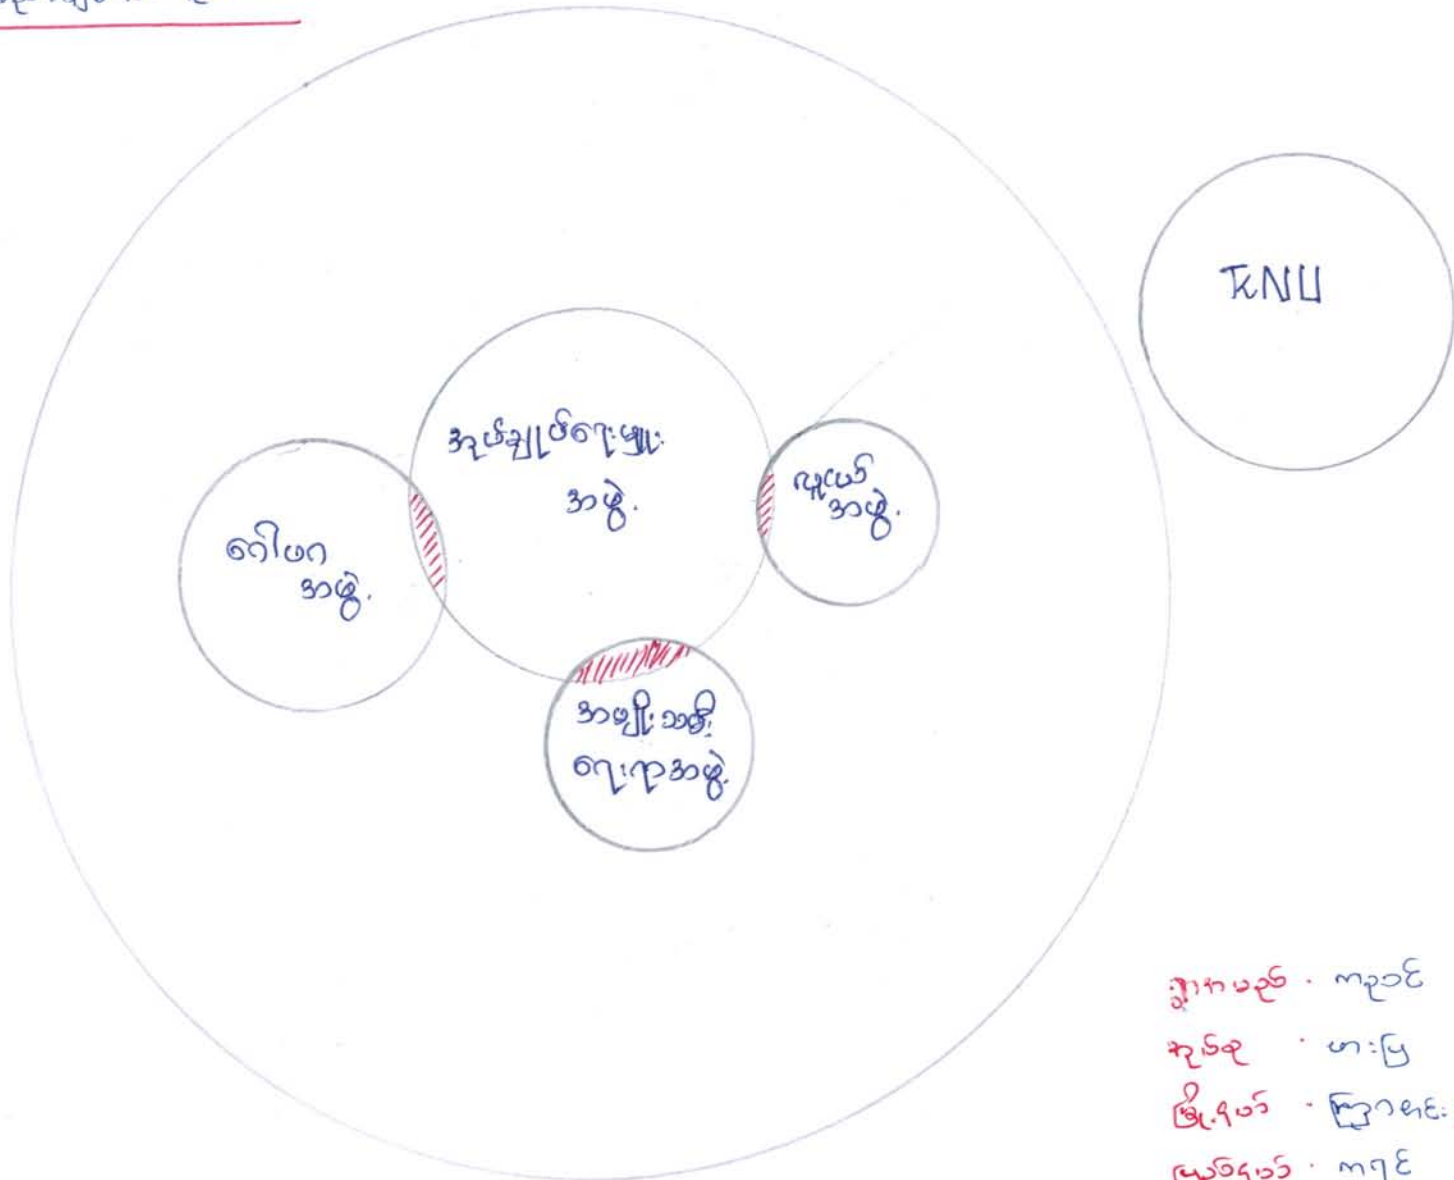 KNU
အုပ်ချုပ်ရေးမှူး
အဖွဲ့
လူငယ်
အဖွဲ့
ဂေါပက
အဖွဲ့
အမျိုးသမီး
ရေးရာအဖွဲ့
ရွာအမည် - ကညင်
အုပ်စု - ဖားပြ
မြို့နယ်
ပြည်နယ် - ကရင်